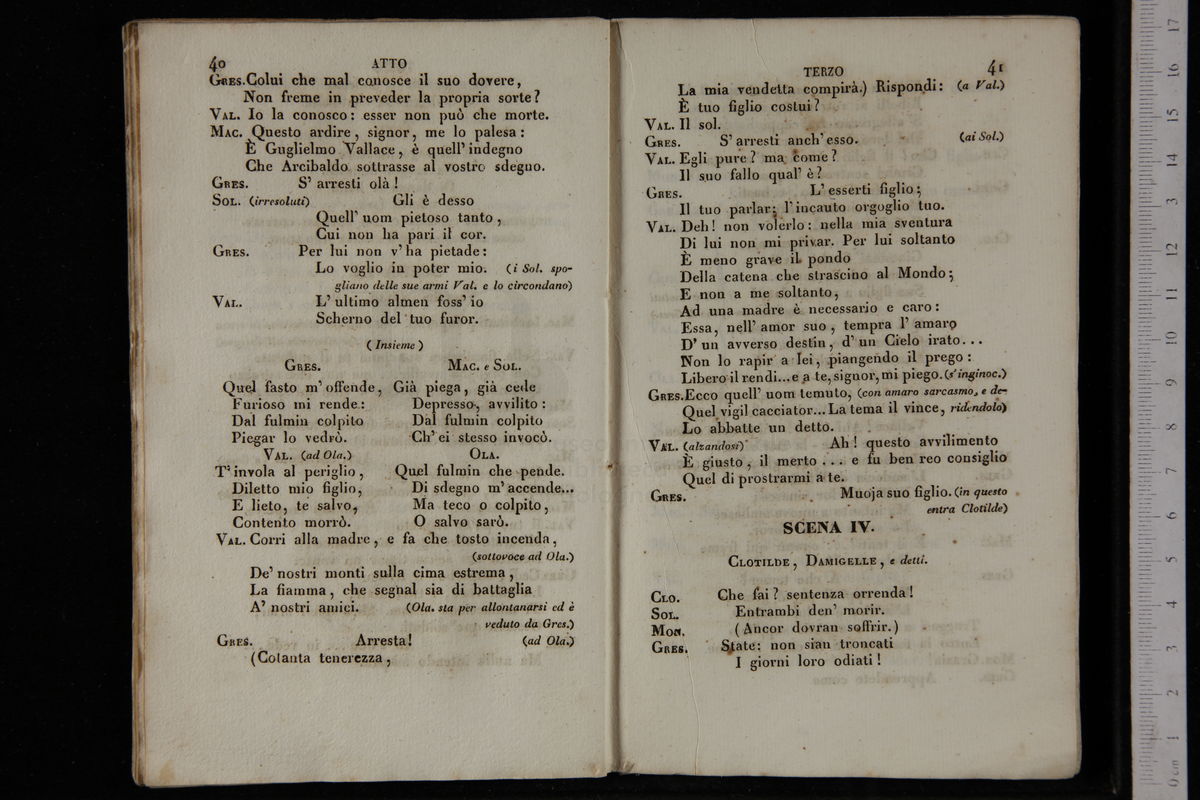 40 ATTO
GRES. Colui che mal conosce il suo dovere,
Non freme in preveder la propria sorte?
VAL. Io la conosco: esser non può che morte.
MAC. Questo ardire, signor, me lo palesa:
È Guglielmo Vallace, è quell' indegno
Che Arcibaldo sottrasse al vostro sdegno.
GRES. S' arresti olà!
SOL. (irresoluti) Gli è desso
Quell' uom pietoso tanto,
Cui non ha pari il cor.
GRES. Per lui non v' ha pietade:
Lo voglio in poter mio. (i Sol. spo-
gliano delle sue armi Val. e lo circondano)
VAL. L' ultimo almen foss' io
Scherno del tuo furor.
(Insieme)
GRES. MAC. e SOL.
Quel fasto m' offende, Già piega, già cede
Furioso mi rende: Depresso, avvilito:
Dal fulmin colpito Dal fulmin colpito
Piegar lo vedrò. Ch' ei stesso invocò.
VAL. (ad Ola.) OLA.
T' invola al periglio, Quel fulmin che pende.
Diletto mio figlio, Di sdegno m' accende...
E lieto, te salvo, Ma teco o colpito,
Contento morrò. O salvo sarò.
VAL. Corri alla madre, e fa che tosto incenda,
(sottovoce ad Ola.)
De' nostri monti sulla cima estrema,
La fiamma, che segnal sia di battaglia
A' nostri amici. (Ola. sta per allontanarsi ed è
veduto da Gres.)
GRES. Arresta! (ad Ola.)
(Cotanta tenerezza,
TERZO 41
La mia vendetta compirà.) Rispondi: (a Val.)
È tuo figlio costui?
VAL. Il sol.
GRES. S' arresti anch' esso. (ai Sol.)
VAL. Egli pure? ma come?
Il suo fallo qual' è?
GRES. L' esserti figlio;
Il tuo parlar; l' incauto orgoglio tuo.
VAL. Deh! non volerlo: nella mia sventura
Di lui non mi privar. Per lui soltanto
È meno grave il pondo
Della catena che strascino al Mondo;
E non a me soltanto,
Ad una madre è necessario e caro:
Essa, nell' amor suo, tempra l' amaro
D' un avverso destin, d' un Cielo irato...
Non lo rapir a lei, piangendo il prego:
Libero il rendi...e a te, signor, mi piego. (s' inginoc.)
GRES. Ecco quell' uom temuto, (con amaro sarcasmo, e de-
Quel vigil cacciator... La tema il vince, ridendolo)
Lo abbatte un detto.
VAL. (alzandosi) Ah! questo avvilimento
È giusto, il merto... e fu ben reo consiglio
Quel di prostrarmi a te.
GRES. Muoja suo figlio. (in questo
entra Clotilde)
SCENA IV.
CLOTILDE, DAMIGELLE, e detti.
CLO. Che fai? sentenza orrenda!
SOL. Entrambi den' morir.
MON. (Ancor dovran soffrir.)
GRES. State: non sian troncati
I giorni loro odiati!